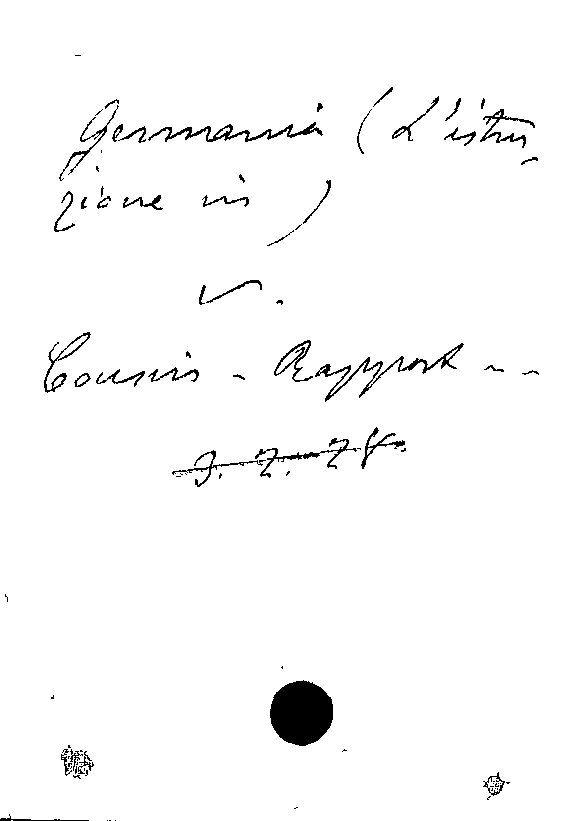 Germania (L'istru-
zione in)
v.
Cousin - Rapport - -
9. Z. Z4.